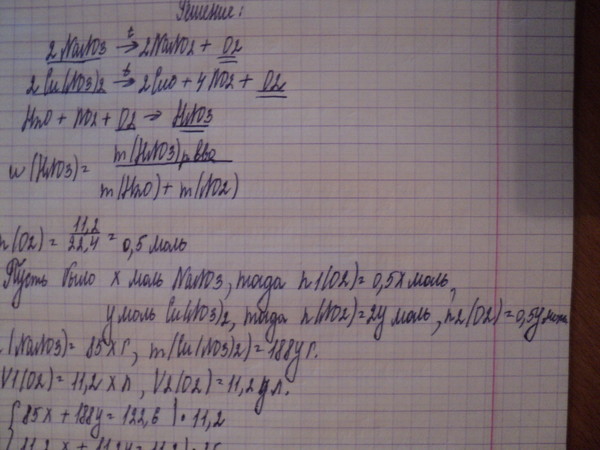 Решение:
2NaNO3 t→ 2NaNO2 + O2
2Cu(NO3)2 t→ 2CuO + 4NO2 + O2
H2O + NO2 + O2 → HNO3
w(HNO3) = m(HNO3)р.в-ва
m(H2O) + m(NO2)
n(O2) = 11,2/22,4 = 0,5 моль
Пусть было x моль NaNO3, тогда n1(O2) = 0,5x моль,
y моль Cu(NO3)2, тогда n(NO2) = 2y моль, n2(O2) = 0,5y моль
(NaNO3) = 85x г, m(Cu(NO3)2) = 188y г.
V1(O2) = 11,2x л, V2(O2) = 11,2y л.
{85x + 188y = 122,6 | · 11,2
11,2x + 11,2y = 11,2 |